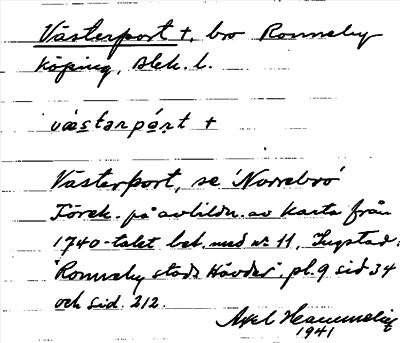 Västerport †, bro Ronneby
köping, Blek. l.
västerpórt †
Västerport, se 'Norrebro'
Förek. på avbildn. av karta från
1740-talet bet. med nr 11, Lugstad:
"Ronneby stads Hävder". pl. 9 sid 34
och sid. 212.
Axel
1941